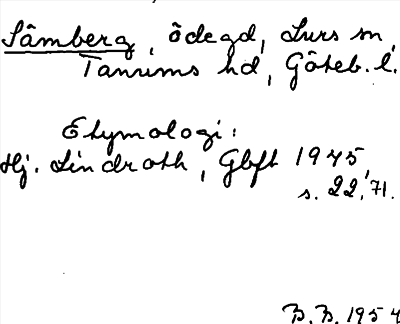 Sâmberg, ödegd, Lurs sn,
Tanums hd, Göteb. l.
Etymologi:
Hj. Lindroth, Gbft 1945,
s. 22, 71.
B. B. 1954